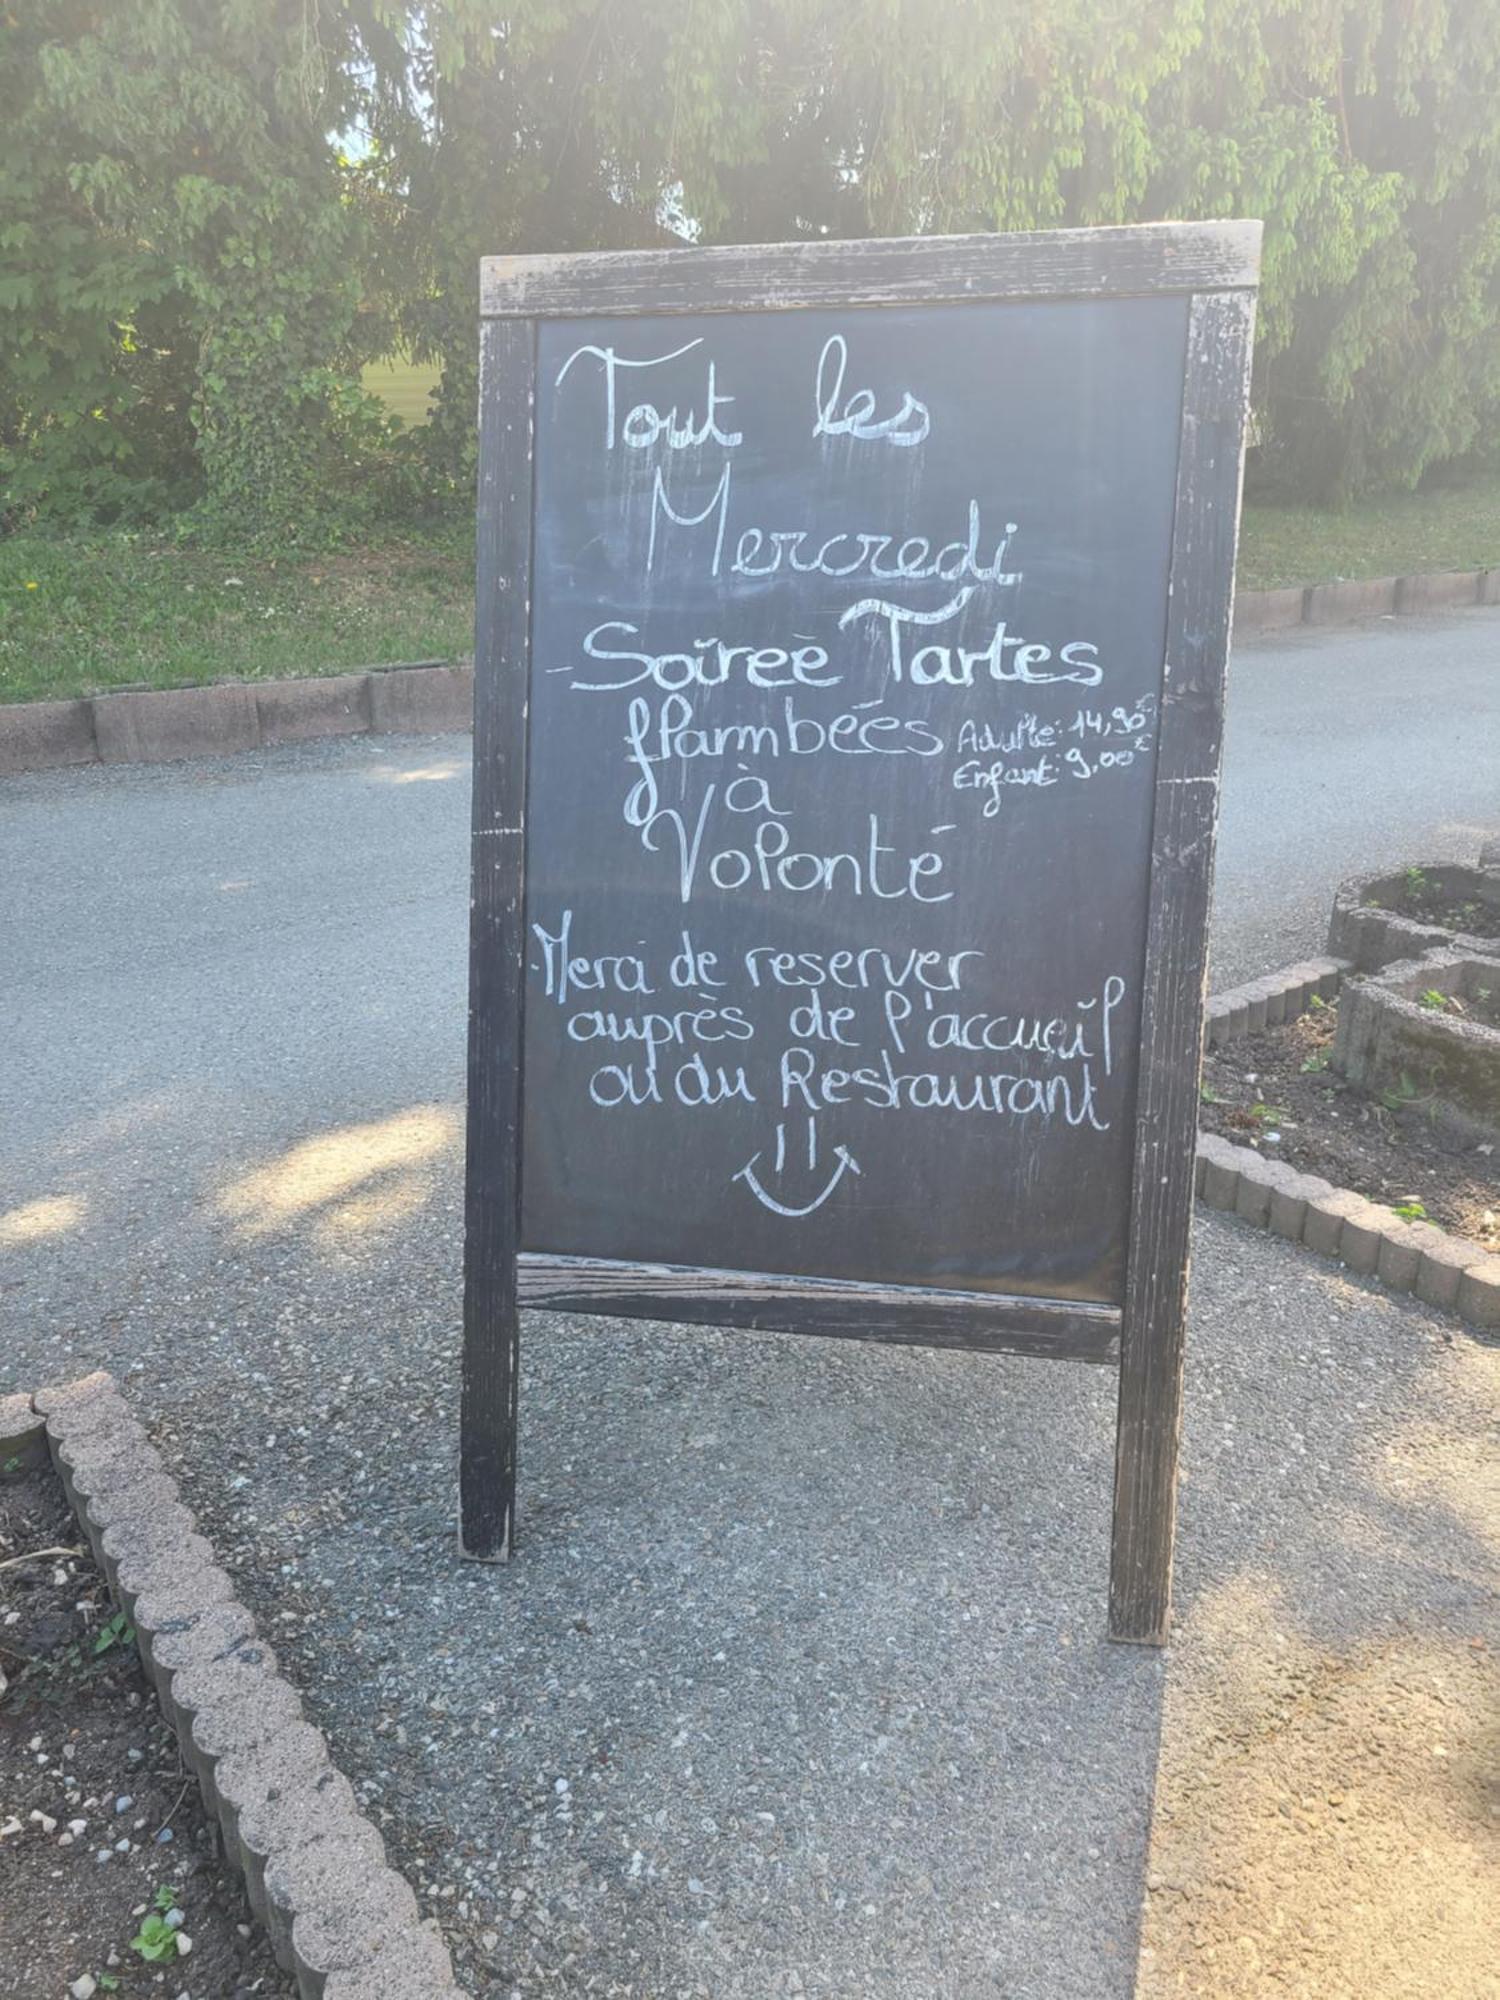 Tout les
Mercredi
Soireè Tartes
flambéés Adulte: 14,90€
Enfant: 9,00€
à
Volonté
Merci de reserver
auprès de l'accueil
ou du Restaurant